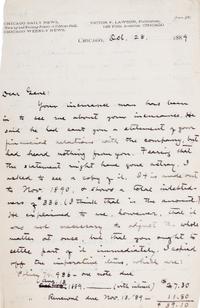 CHICAGO DAILY NEWS,
CHICAGO WEEKLY NEWS.
VICTOR F. LAWSON,
CHICAGO, Oct. 28, 1889
Dear Gene:
Your insurance man has been
in to see me about your insurance. He
said he had sent you a statement of your
financial relations with the company, but
had heard nothing from you. Fearing that
the statement might have gone astray, I
asked to see a copy of it. It is made out
to Nov. 1890, & shows a total indebted-
ness of $336. (I think that is the amount.)
He explained to me, however, that it
was not necessary to adjust the
whole matter at once, but that you ought to
settle part of it immediately. I copied
off the imperative items, which are:
one note due
1889. (with interest) $27.30
Renewal due Nov. 18, '89 — 11.80
$39.10